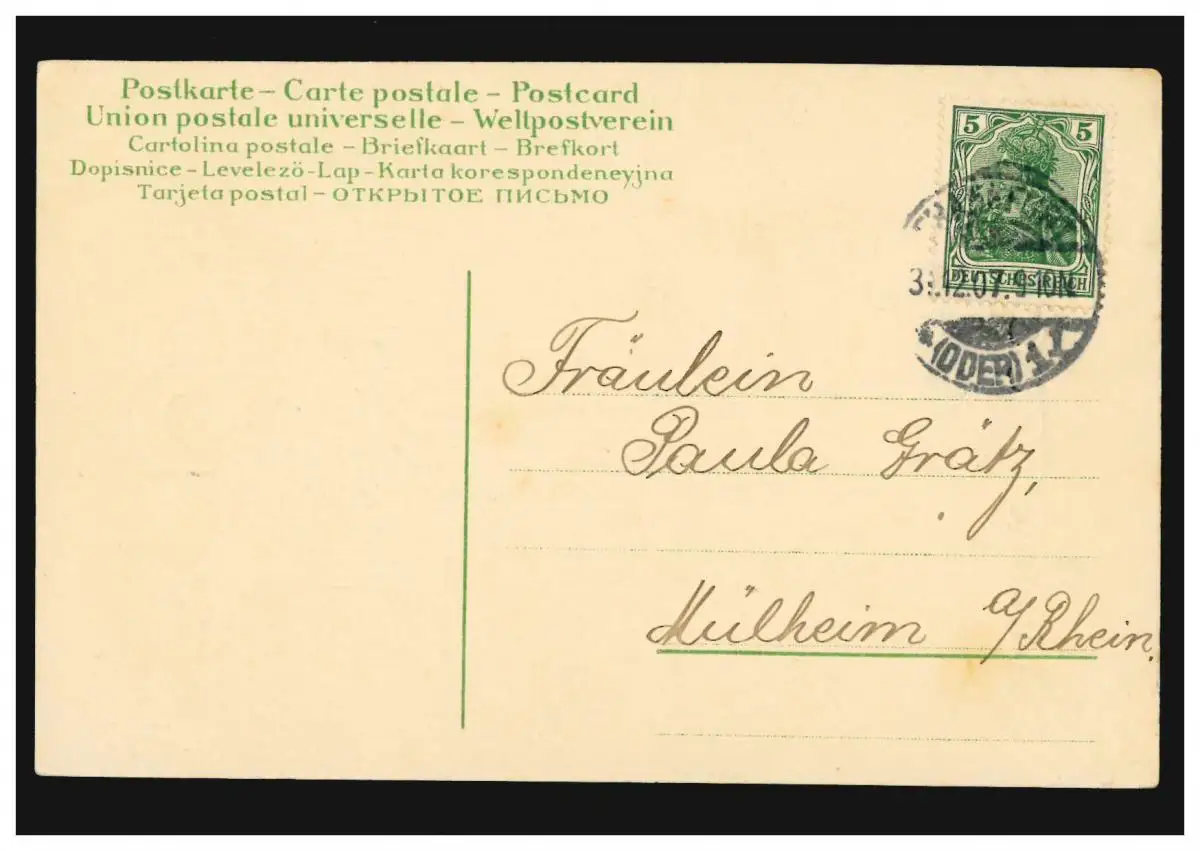 Postkarte – Carte postale – Postcard
Union postale universelle – Weltpostverein
Cartolina postale – Briefkaart – Brefkort
Dopisnice – Levelező-Lap – Karta korespondeneyjna
Tarjeta postal – ОТКРЫТОЕ ПИСЬМО
5 5
DEUTSCHES REICH
12.07.
(ODER)
Fräulein
Paula Grätz,
Mülheim a/Rhein.